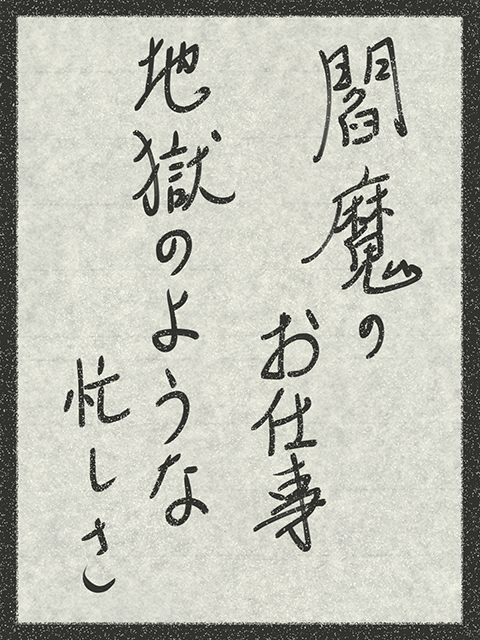 閻魔の
お仕事
地獄のような
忙しさ